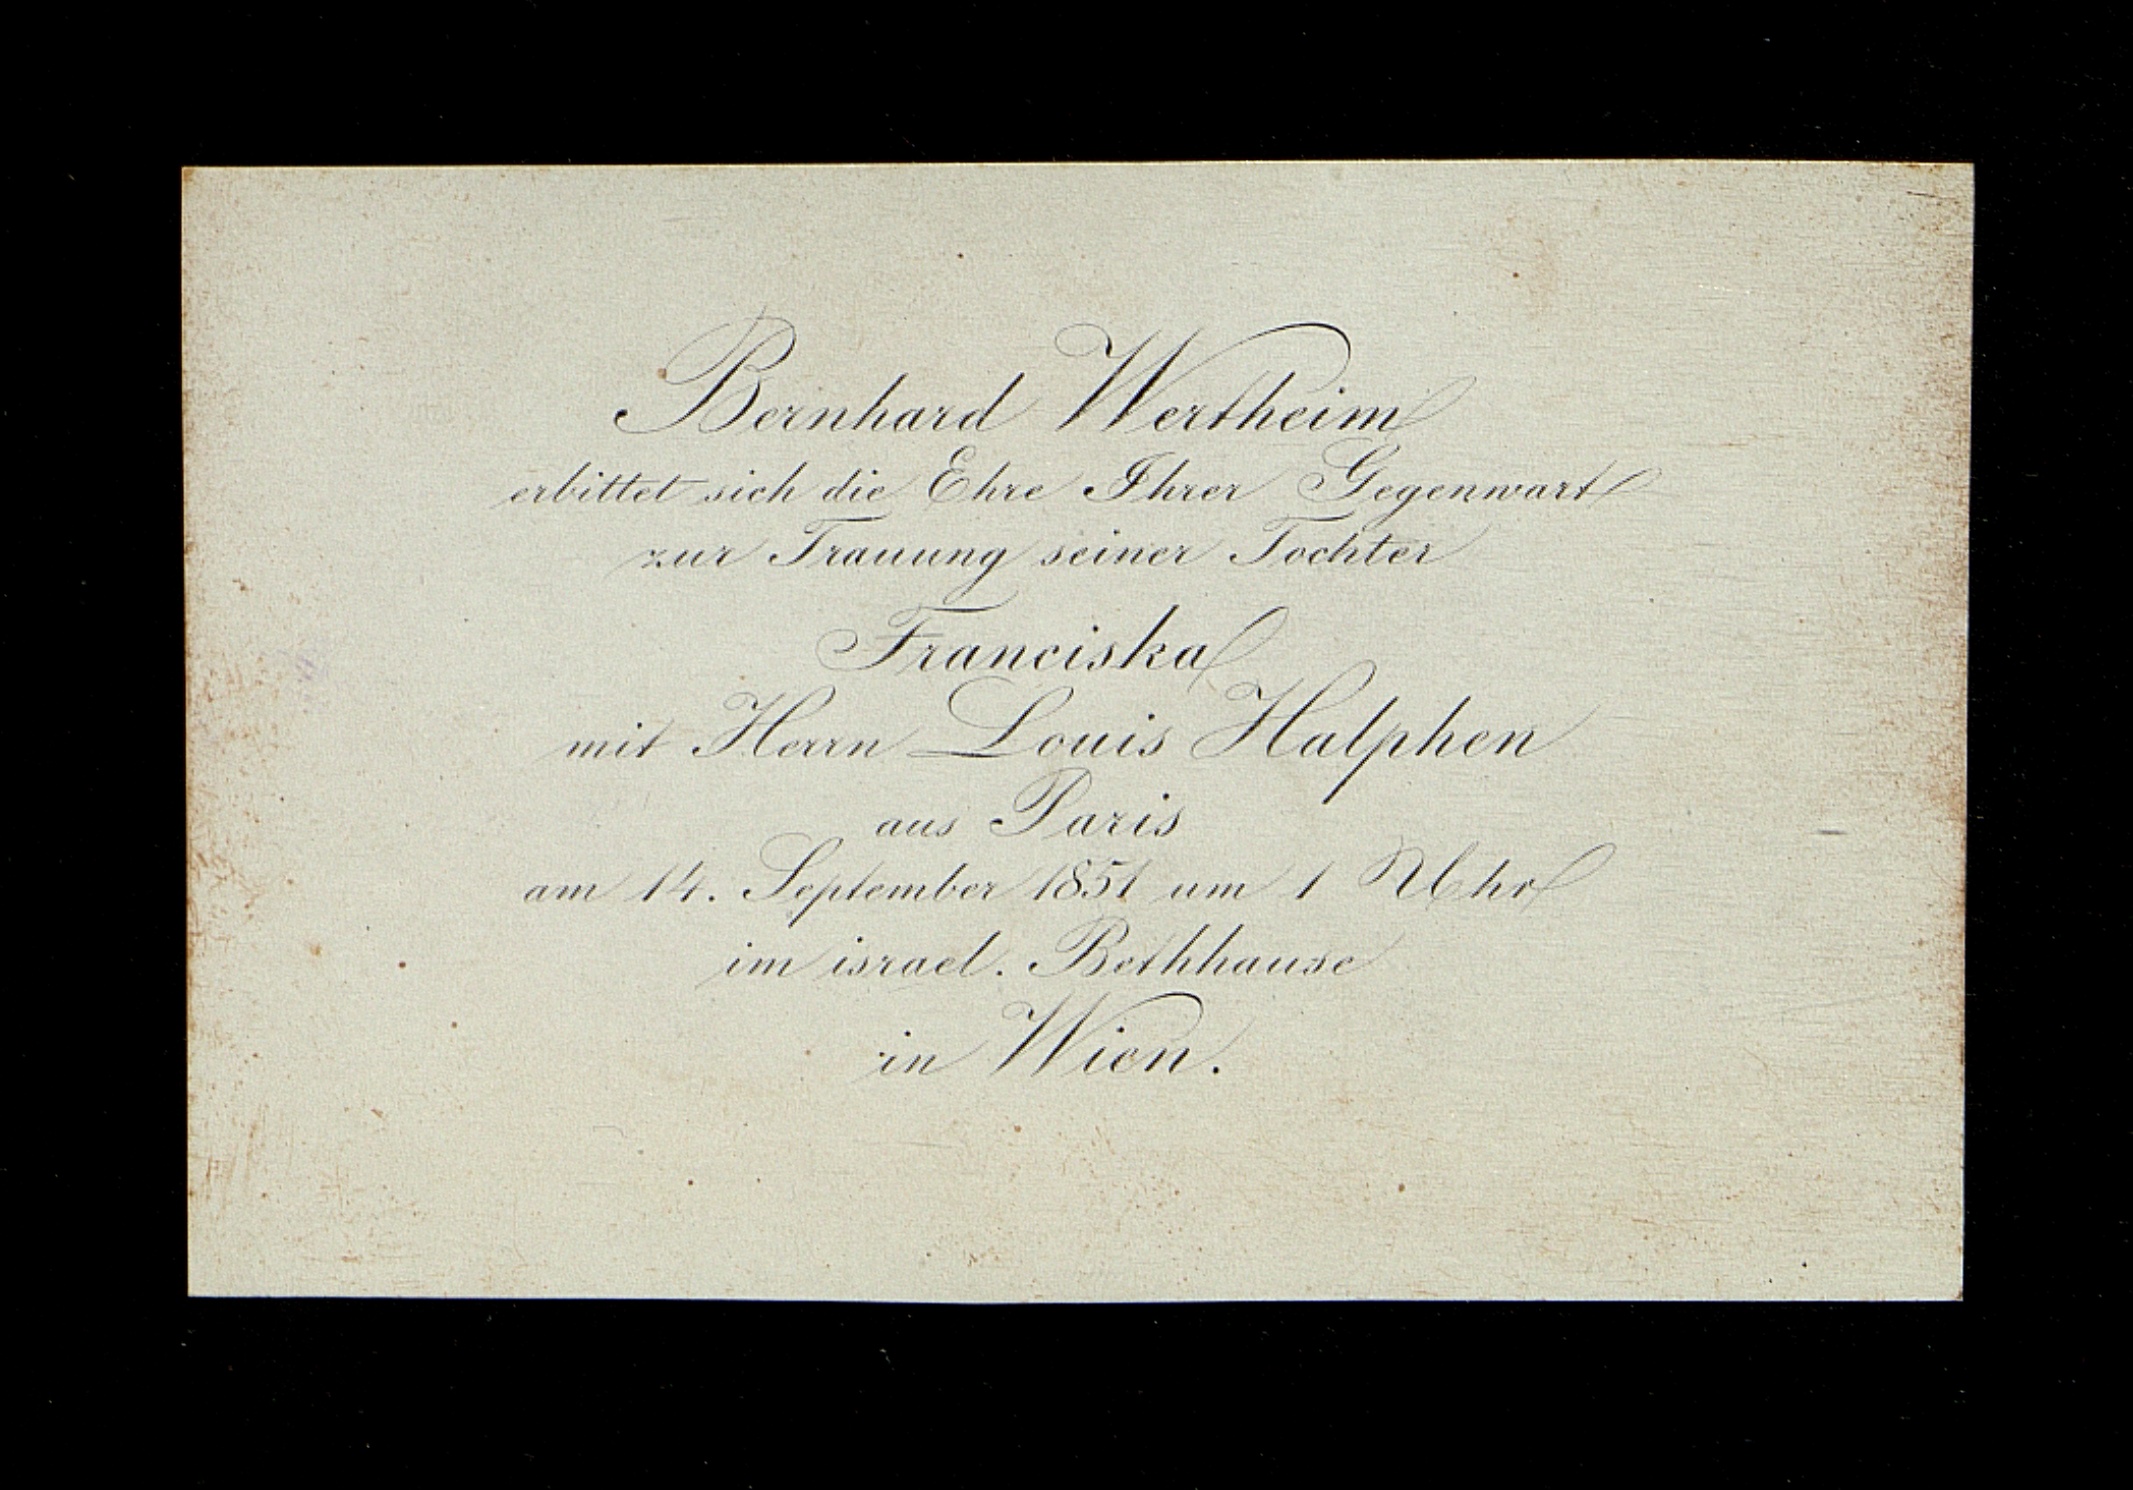 Bernhard Wertheim
erbittet sich die Ehre Ihrer Gegenwart
zur Trauung seiner Tochter
Franciska
mit Herrn Louis Halphen
aus Paris
am 14. September 1851 um 1 Uhr
im israel. Bethhause
in Wien.